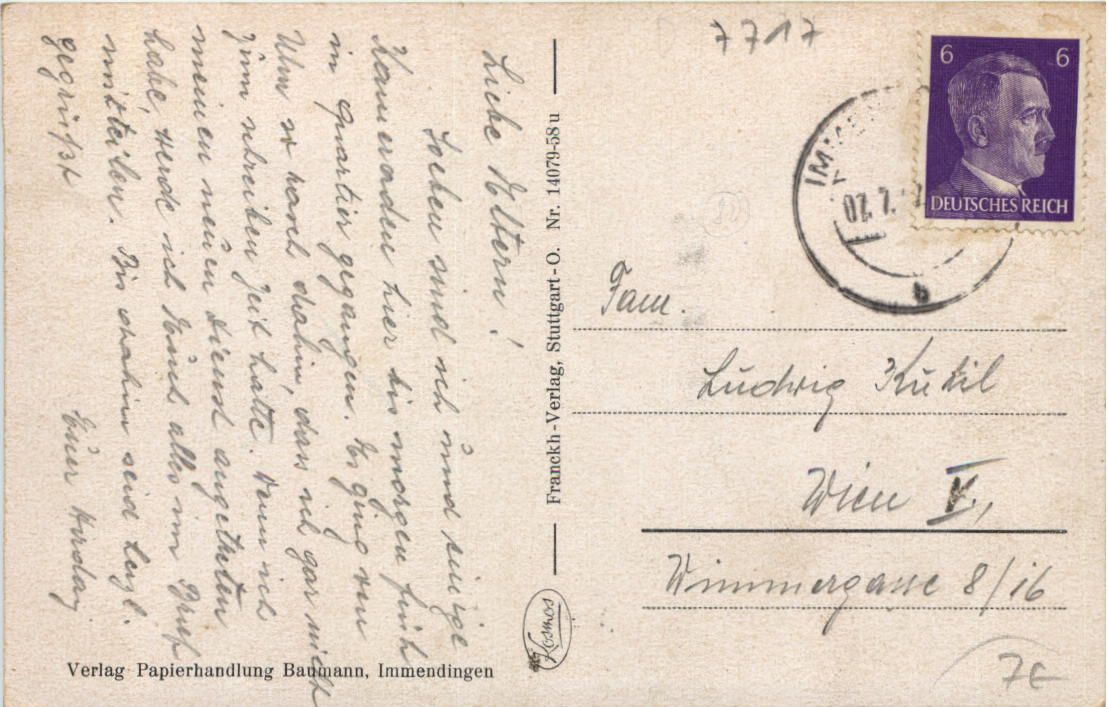 7717
6 6
DEUTSCHES REICH
07. 7.
b
Liebe Eltern!
Soeben sind ich und einige
Kameraden hier bis morgen früh
in Quartier gegangen. Es ging von
Ulm so rasch dahin, dass ich gar nicht
zum schreiben Zeit hatte. Wenn ich
meinen neuen Dienst angetreten
habe, werde ich Euch alles im Brief
mitteilen. Bis dahin seid herzl.
gegrüßt
Euer
Franckh-Verlag, Stuttgart-O. Nr. 14079-58u
Kosmos
Verlag Papierhandlung Baumann, Immendingen
Fam.
Ludwig
Wien V.,
Wimmergasse 8/16
7€